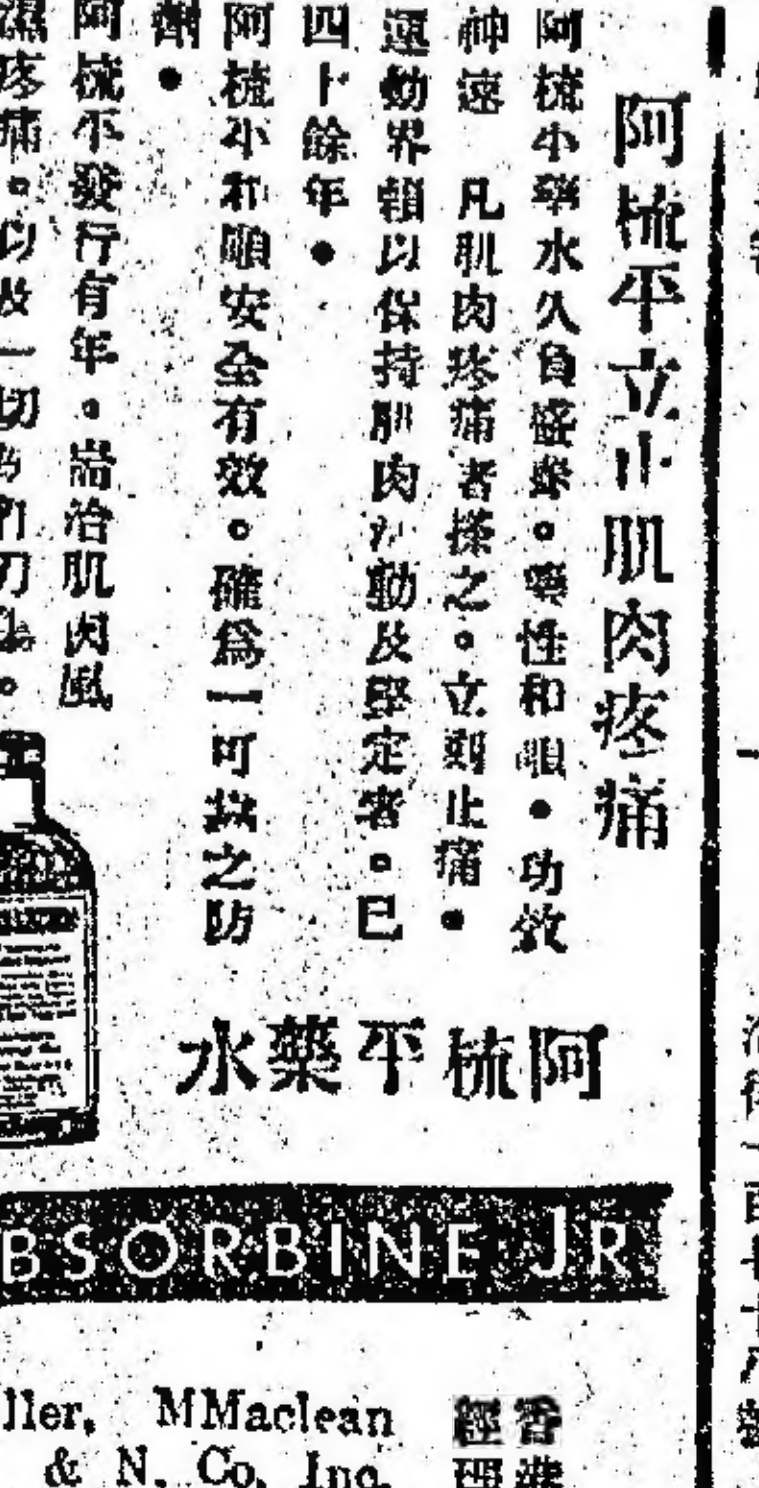 阿梳平立止肌肉疼痛
阿梳平藥水久負盛譽。藥性和順●功效
神速 凡肌肉疼痛者搽之。立刻止痛●
運動界賴以保持肌肉活動及堅定者。已
四十餘年●
阿梳平和順安全有效。確爲一可靠之防
劑●
阿梳平發行有年。耑治肌肉風
濕疼痛。以及一切
阿梳平藥水
BSORBINE JR.
ller, MMaclean
& N. Co. Inc.
香港
經理